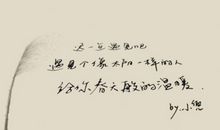 这一点遇见吧
遇见个像太阳一样的人
给你春天般的温暖.
by.小